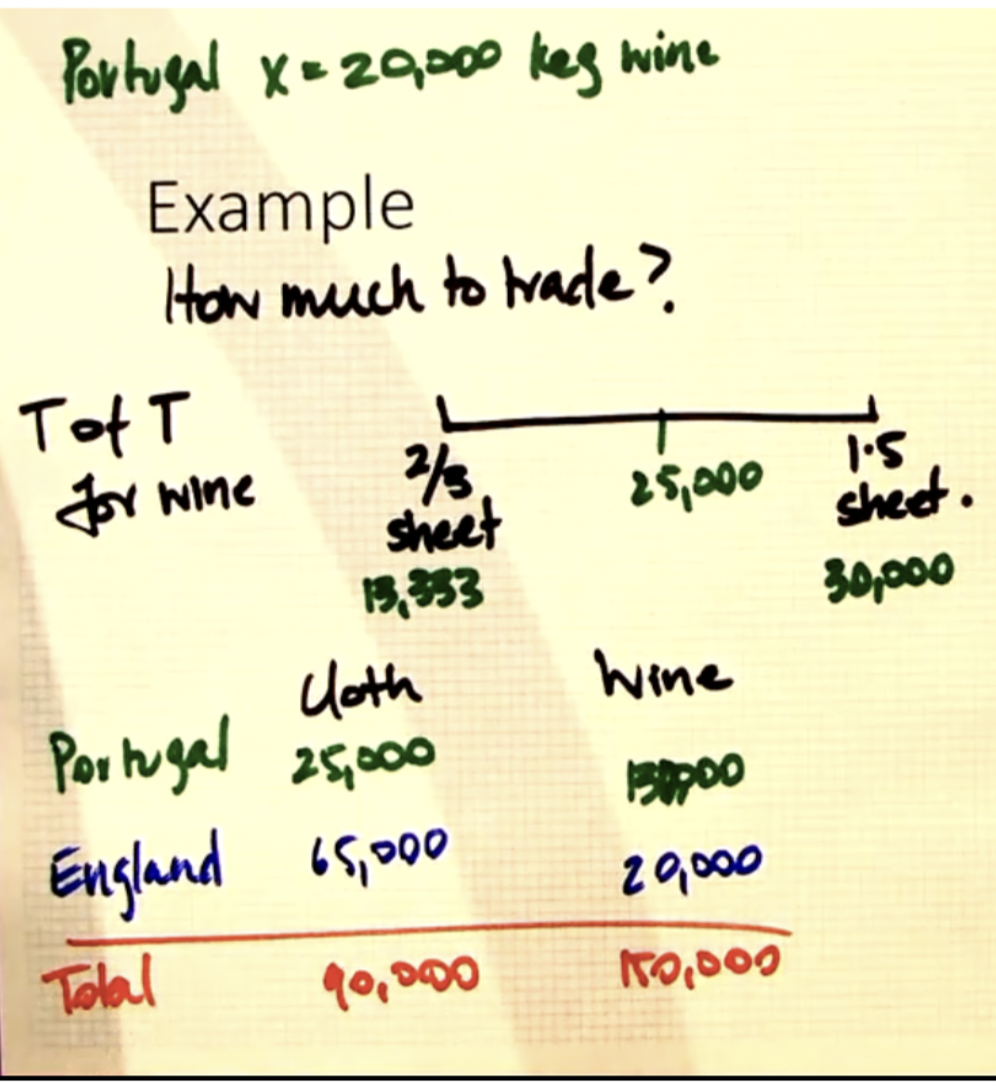 Portugal X = 20,000 keg wine
Example
How much to trade?
T of T
for wine
2/3 25,000 1.5
sheet sheet.
13,333 30,000
Cloth Wine
Portugal 25,000
England 65,000 20,000
Total 90,000 150,000